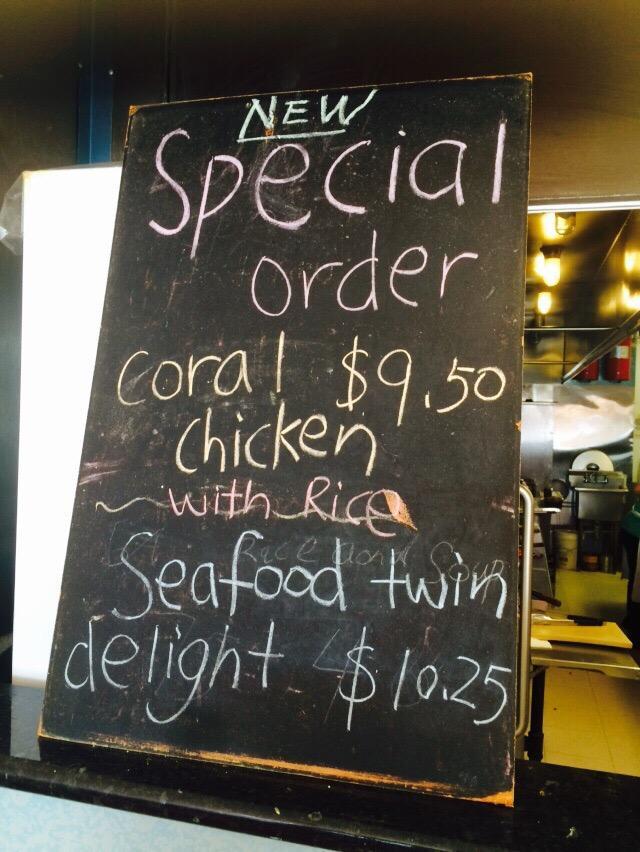 NEW
Special
order
coral $9.50
chicken
with Rice
Rice and Soup
Seafood twin
delight $10.25